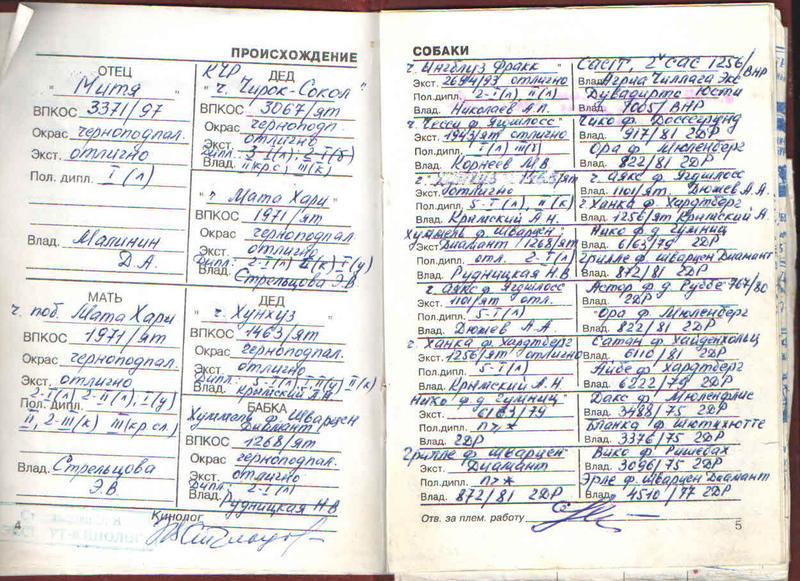 ПРОИСХОЖДЕНИЕ
ОТЕЦ
" Митя "
ВПКОС 3371/97
Окрас чернопо́дпал.
Экст. отлично
Пол. дипл. I (л)
Влад. Малинин
Д.А.
КЧР ДЕД
" ч. Чирок-Сокол "
ВПКОС 3067/ят
Окрас черноподп.
Экст. отлично
Влад.
" ч. Мата Хари "
ВПКОС 1971/ят
Окрас черноподпал.
Экст. отлично
Дипл. 2-I(л) II(к) I(у)
Влад. Стрельцова Э.В
МАТЬ
ч. поб. Мата Хари
ВПКОС 1971/ят
Окрас черноподпал.
Экст. отлично
2-I(л) 2-II(л), I(у)
Пол. дипл.
II, 2-III(к) III(кр сл.)
Влад. Стрельцова
Э.В.
ДЕД
" ч. Хунхуз "
ВПКОС 1463/ят
Окрас черноподпал.
Экст. отлично
Дипл. 5-I(л), II(у), II(к)
Влад. Крымский А.Н.
БАБКА
Хуммель ф. Шварцен
Диамант
ВПКОС 1268/ят
Окрас черноподпал.
Экст. отлично
Дипл. 2-I(л)
Влад. Рудницкая Н.В
Кинолог
4
СОБАКИ
ч. Инглуз Фракк "
Экст. 2694/93 отлично
Пол.дипл. 2-I(л) II(л)
Влад. Николаев А.П.
ч. Чесси ф. Ягшлосс
Экст. 1943/ят отлично
Пол.дипл. I(л) III(у)
Влад. Корнеев М.В
Экст. отлично
Пол.дипл. 5-I(л), II(к)
Влад. Крымский А.Н.
Хуммель ф. Шварцен
Экст. Диамант 1268/ят
Пол.дипл. отл. 2-I(л)
Влад. Рудницкая Н.В
ч. Аякс ф. Ягдшлосс
Экст. 1101/ят отл.
Пол.дипл. 5-I(л)
Влад. Дюжев А.А.
ч. Ханка ф. Хардтберг
Экст. 1256/ят отлично
Пол.дипл. 5-I(л)
Влад. Крымский А.Н.
Нико ф.д. Гумниц "
Экст. 6163/79
Пол.дипл.
Влад. 2DР
Грилле ф. Шварцен
Экст. Диамант
Пол.дипл.
Влад. 872/81 2DР
CACIT, 2 CAC 1256/ВНР
Влад. Агриа Чиллага Экс
Юсти
Влад. 7005/ВНР
Чико ф. Боссегрунд
Влад. 917/81 2DР
Ора ф. Мюленберг
Влад. 822/81 2DР
ч. Аякс ф. Ягдшлосс
Влад. 1101/ят. Дюжев А.А.
ч Ханка ф. Хардтберг
Влад. 1256/ят Крымский А
Нико ф.д. Гумниц
Влад. 6163/79 2DР
Грилле ф. Шварцен Диамант
Влад. 872/81 2DР
Астор ф.д. Руббе 767/80
Влад. 2DР
Ора ф. Мюленберг
Влад. 822/81 2DР
Сатан ф. Хайденхольц
Влад. 6110/81 2DР
Айбе ф. Хардтберг
Влад. 6222/79 2DР
Дакс ф. Мюленфлис
Влад. 3488/75 2DР
Бланка ф Шютихютте
Влад. 3376/75 2DР
Вико ф Ришебах
Влад. 3096/75 2DР
Эрле ф. Шварцен Диамант
Влад. 4510/77 2DР
Отв. за плем. работу
5